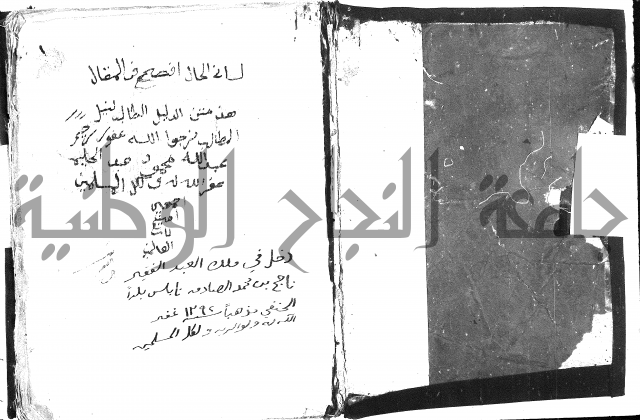 لسان الحال افصح من المقال
هذا متن الدليل الطالب لنيل
المطالب نرجوا الله عفور رحيم
عبد الله
غفر الله له ولكل المسلمين
اجمعين
امين
يا رب
العالمين
دخل في ملك العبد الفقير
ناجح بن محمد الصادق نابلس بلدا
الحنفي مذهبا سنة ١٢٩٤ غفر
الله له ولوالديه ولكل المسلمين
جامعة النجاح الوطنية